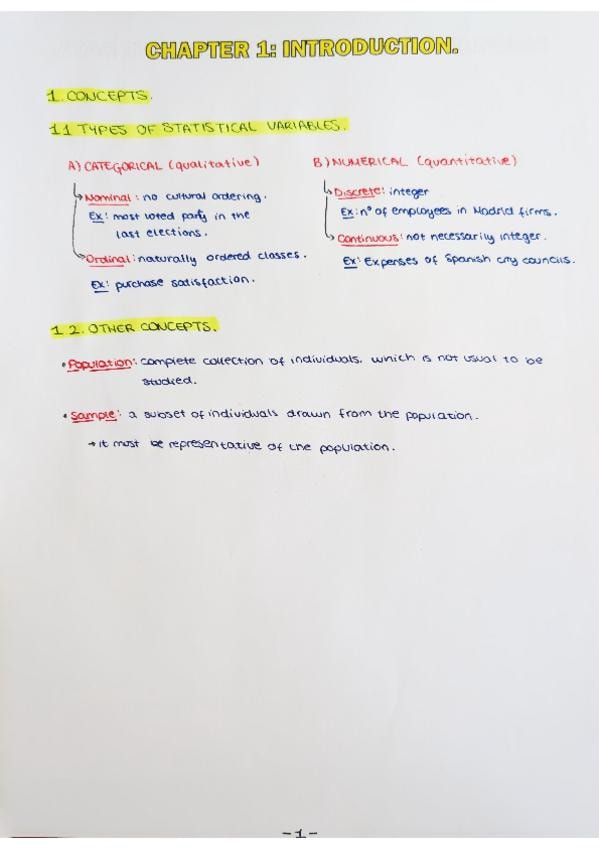 CHAPTER 1: INTRODUCTION.
1. CONCEPTS.
1.1 TYPES OF STATISTICAL VARIABLES.
A) CATEGORICAL (qualitative)
Nominal: no cultural ordering.
Ex: most voted party in the
last elections.
Ordinal: naturally ordered classes.
Ex: purchase satisfaction.
B) NUMERICAL (quantitative)
Discrete: integer
Ex: nº of employees in Madrid firms.
Continuous: not necessarily integer.
Ex: Expenses of Spanish city councils.
1.2. OTHER CONCEPTS.
• Population: complete collection of individuals, which is not usual to be
studied.
• Sample: a subset of individuals drawn from the population.
→ it must be representative of the population.
-1-